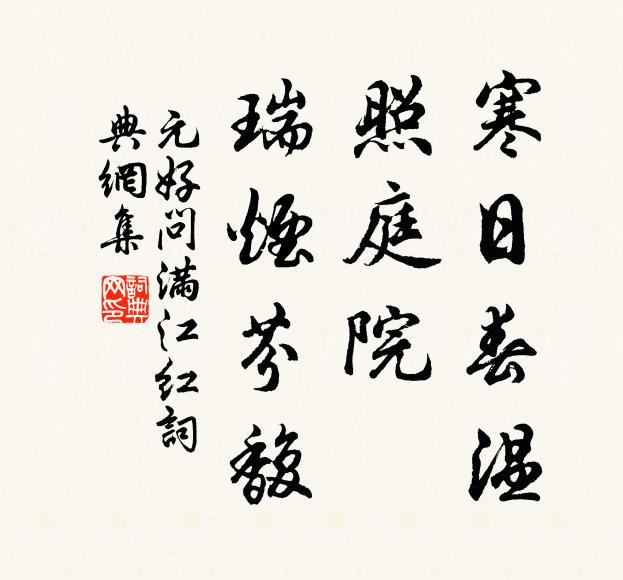 寒日春温
照庭院
瑞煙芬馥
元好问满江红詞
典網集
詞典网印